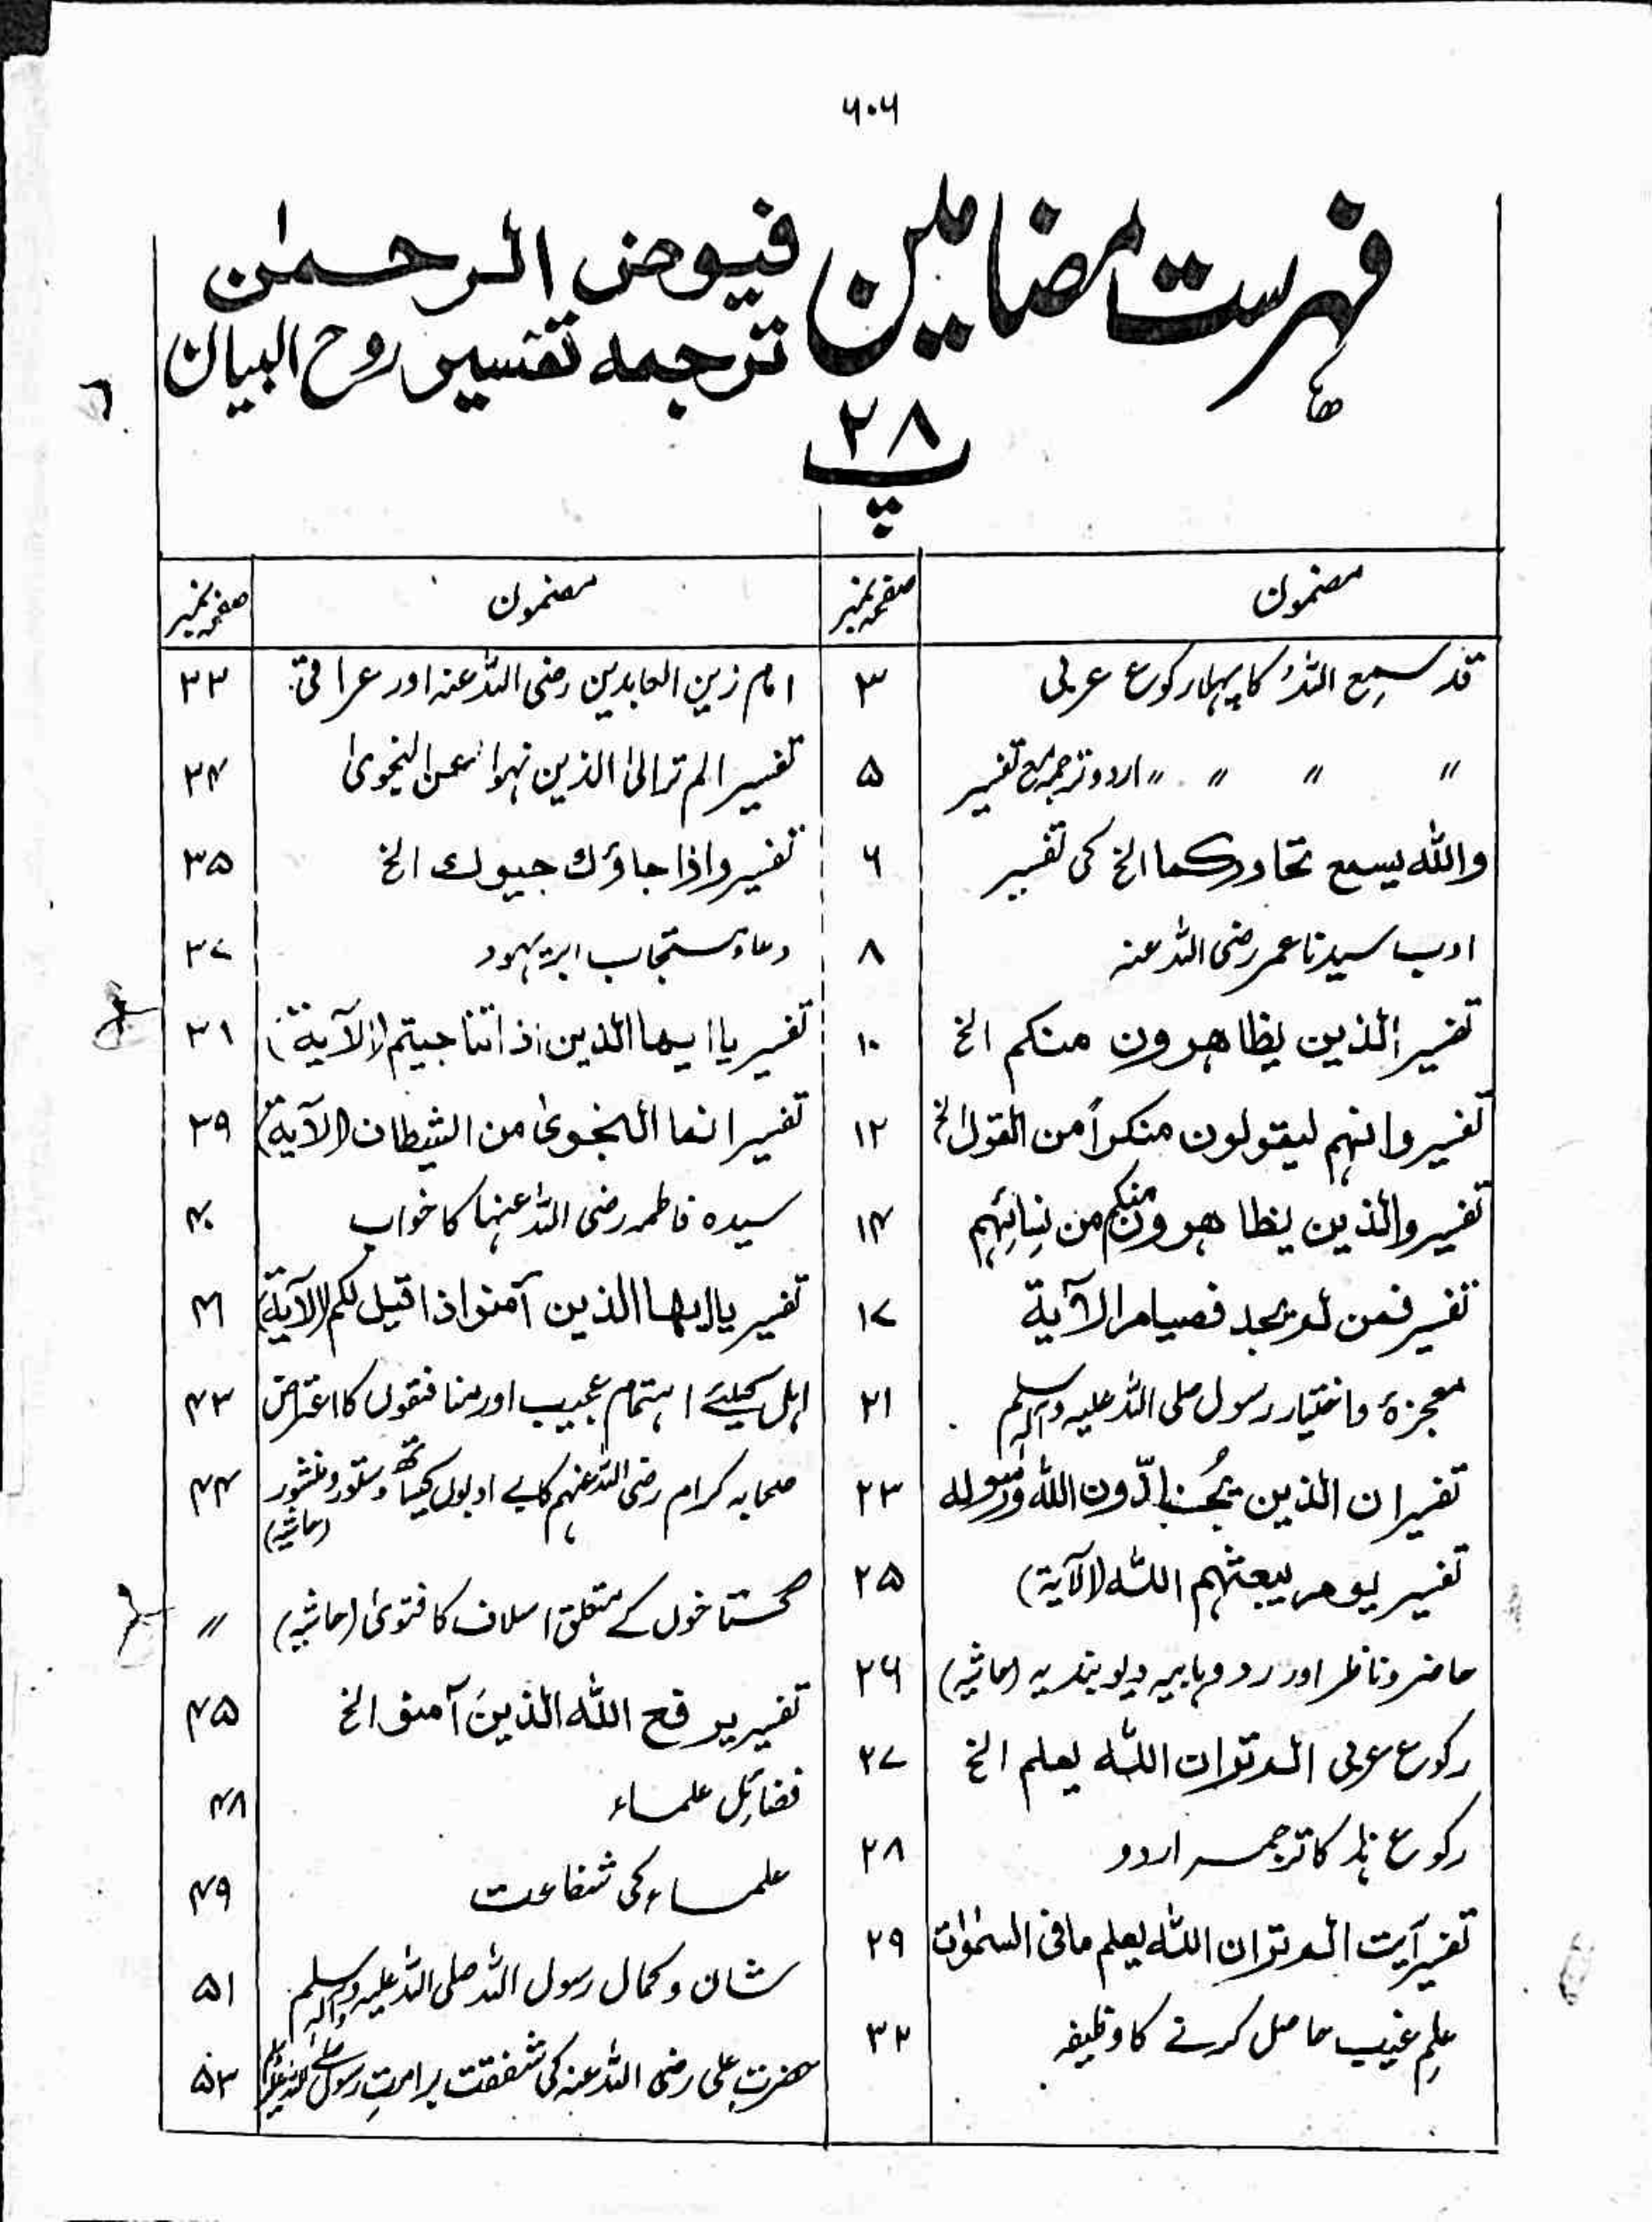 ۶۰۶
فہرست مضامین فیوض الرحمٰن
ترجمہ تفسیر روح البیان
پ ۲۸
مضمون صفحہ نمبر
قد سمع اللہ کا پہلا رکوع عربی ۳
〃 〃 〃 〃 اردو ترجمہ مع تفسیر ۵
واللہ یسمع تحاورکما الخ کی تفسیر ۶
ادب سیدنا عمر رضی اللہ عنہ ۸
تفسیر الذین یظاھرون منکم الخ ۱۰
تفسیر وانہم لیقولون منکراً من القول الخ ۱۲
تفسیر والذین یظاھرون منکم من نسائہم ۱۴
تفسیر فمن لم یجد فصیام الآیۃ ۱۷
معجزۂ و اختیار رسول صلی اللہ علیہ وآلہ وسلم ۲۱
تفسیر ان الذین یحادّون اللہ ورسولہ ۲۳
تفسیر یوم یبعثہم اللہ (الآیۃ) ۲۵
حاضر و ناظر اور رد وہابیہ دیوبندیہ (حاشیہ) ۲۶
رکوع عربی الم تر ان اللہ یعلم الخ ۲۷
رکوع ہذا کا ترجمہ اردو ۲۸
تفسیر آیت الم تر ان اللہ یعلم مافی السمٰوات ۲۹
علمِ غیب حاصل کرنے کا وظیفہ ۳۲
مضمون صفحہ نمبر
امام زین العابدین رضی اللہ عنہ اور عراقی ۳۳
تفسیر الم تر الی الذین نہوا عن النجویٰ ۳۴
تفسیر واذا جاؤک حیوک الخ ۳۵
دعاء مستجاب بر یہود ۳۷
تفسیر یا ایہا الذین اذا تناجیتم (الآیۃ) ۳۱
تفسیر انما النجویٰ من الشیطان (الآیۃ) ۳۹
سیدہ فاطمہ رضی اللہ عنہا کا خواب ۴۰
تفسیر یا ایہا الذین آمنوا اذا قیل لکم (الآیۃ) ۴۱
اہل کیلئے اہتمام عجیب اور منافقوں کا اعتراض ۴۳
صحابہ کرام رضی اللہ عنہم کا بے ادبوں کیساتھ دستور و منشور (حاشیہ) ۴۴
گستاخوں کے متعلق اسلاف کا فتویٰ (حاشیہ) 〃
تفسیر یرفع اللہ الذین آمنوا الخ ۴۵
فضائل علماء ۴۸
علماء کی شفاعت ۴۹
شان و کمال رسول اللہ صلی اللہ علیہ وآلہ وسلم ۵۱
حضرت علی رضی اللہ عنہ کی شفقت بر امتِ رسول صلی اللہ علیہ وسلم ۵۳